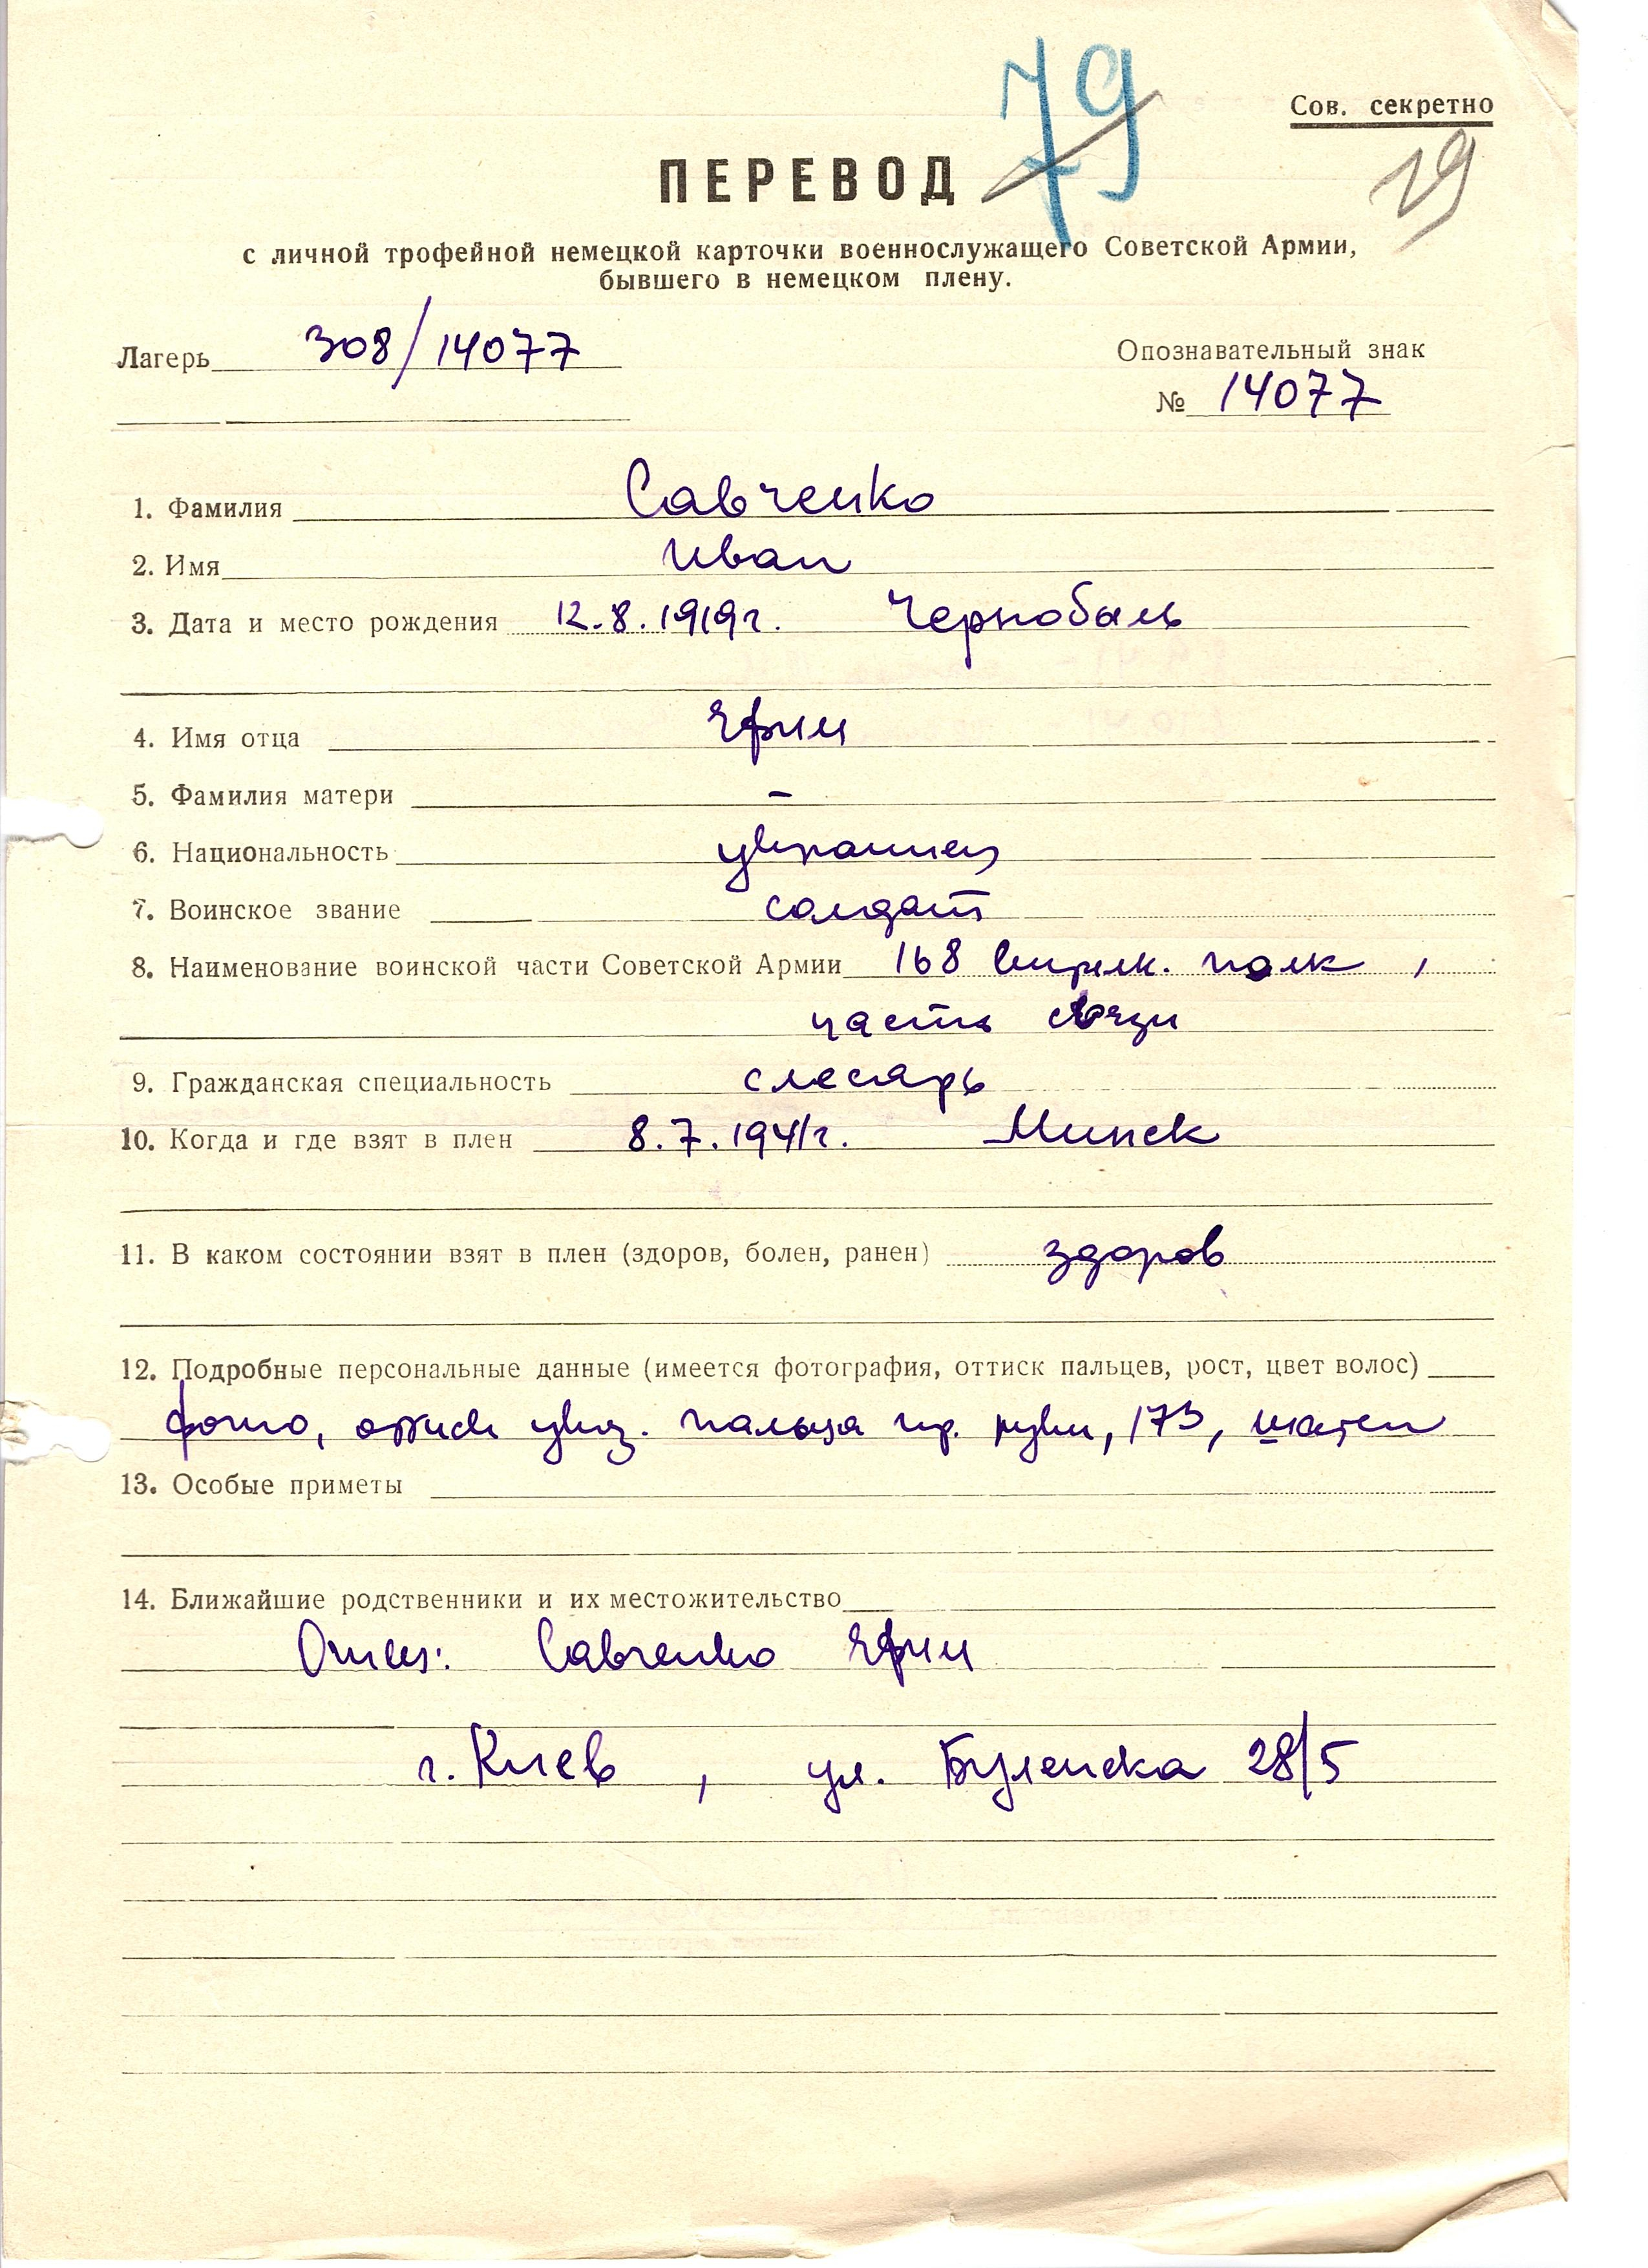 79
Сов. секретно
19
ПЕРЕВОД
с личной трофейной немецкой карточки военнослужащего Советской Армии,
бывшего в немецком плену.
Лагерь 308/14077
Опознавательный знак
№ 14077
1. Фамилия Савченко
2. Имя Иван
3. Дата и место рождения 12.8.1919г. Чернобыль
4. Имя отца
5. Фамилия матери –
6. Национальность украинец
7. Воинское звание солдат
8. Наименование воинской части Советской Армии 168 стрелк. полк,
часть связи
9. Гражданская специальность слесарь
10. Когда и где взят в плен 8.7.1941г. Минск
11. В каком состоянии взят в плен (здоров, болен, ранен) здоров
12. Подробные персональные данные (имеется фотография, оттиск пальцев, рост, цвет волос)
фото, оттиск указ. пальца пр. руки, 173, шатен
13. Особые приметы
14. Ближайшие родственники и их местожительство
Отец: Савченко
г. Киев, ул. 28/5